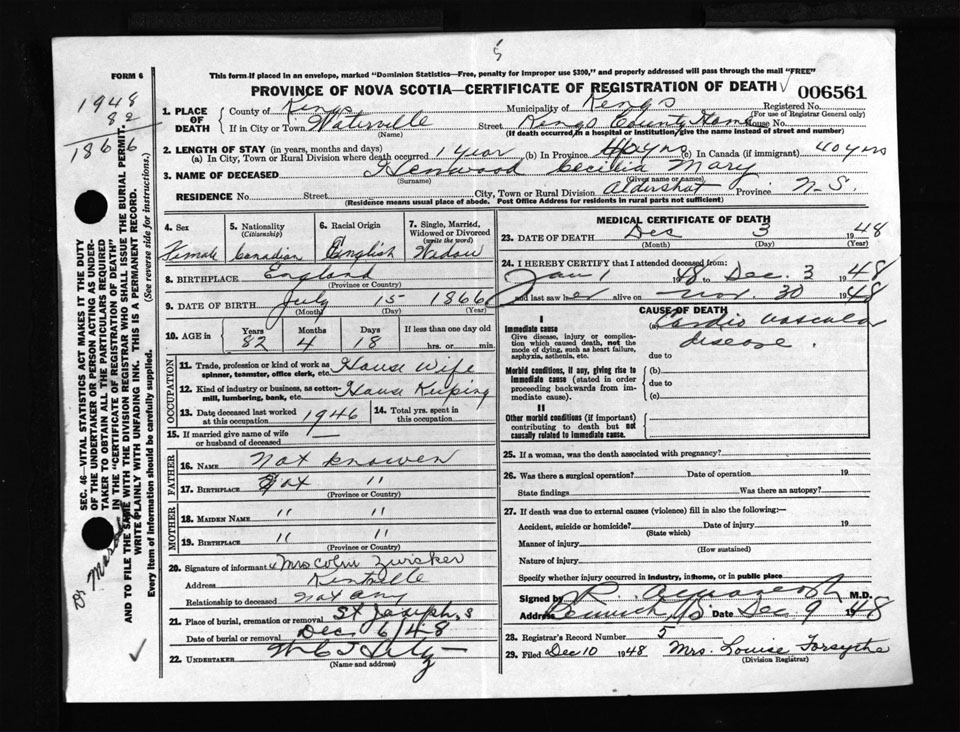 FORM 6
5
This form if placed in an envelope, marked "Dominion Statistics—Free, penalty for improper use $300," and properly addressed will pass through the mail "FREE"
PROVINCE OF NOVA SCOTIA—CERTIFICATE OF REGISTRATION OF DEATH
006561
1948
82
1866
1. PLACE OF DEATH
County of Kings Municipality of Kings Registered No.
(For use of Registrar General only)
If in City or Town Waterville Street Kings County Home House No.
(Name) (If death occurred in a hospital or institution, give the name instead of street and number)
2. LENGTH OF STAY (in years, months and days)
(a) In City, Town or Rural Division where death occurred 1 year (b) In Province 40 yrs (c) In Canada (if immigrant) 40 yrs
3. NAME OF DECEASED Henwood Cecilia Mary
(Surname) (Given name or names)
RESIDENCE No. Street City, Town or Rural Division Aldershot Province N.S.
(Residence means usual place of abode. Post Office Address for residents in rural parts not sufficient)
4. Sex Female
5. Nationality (Citizenship) Canadian
6. Racial Origin English
7. Single, Married, Widowed or Divorced (write the word) Widow
8. BIRTHPLACE England
(Province or Country)
9. DATE OF BIRTH July 15 1866
(Month) (Day) (Year)
10. AGE in Years 82 Months 4 Days 18 If less than one day old hrs. or min.
OCCUPATION
11. Trade, profession or kind of work as spinner, teamster, office clerk, etc. House Wife
12. Kind of industry or business, as cotton-mill, lumbering, bank, etc. House Keeping
13. Date deceased last worked at this occupation 1946
14. Total yrs. spent in this occupation
15. If married give name of wife or husband of deceased —
FATHER
16. NAME Not knowen
17. BIRTHPLACE Not "
(Province or Country)
MOTHER
18. MAIDEN NAME " "
19. BIRTHPLACE " "
(Province or Country)
20. Signature of informant Mrs Colin Zwicker
Address Kentville
Relationship to deceased Not any
21. Place of burial, cremation or removal St Josephs
Date of burial or removal Dec 6/48
22. UNDERTAKER
(Name and address)
MEDICAL CERTIFICATE OF DEATH
23. DATE OF DEATH Dec 3 1948
(Month) (Day) (Year)
24. I HEREBY CERTIFY that I attended deceased from:
Jan 1 48 to Dec. 3 1948
and last saw her alive on Nov. 30 1948
CAUSE OF DEATH
I
Immediate cause
Give disease, injury or complication which caused death, not the mode of dying, such as heart failure, asphyxia, asthenia, etc.
(a) Cardio vascular disease.
due to
Morbid conditions, if any, giving rise to immediate cause (stated in order proceeding backwards from immediate cause).
(b)
due to
(c)
II
Other morbid conditions (if important) contributing to death but not causally related to immediate cause.
25. If a woman, was the death associated with pregnancy?
26. Was there a surgical operation? Date of operation 19
State findings Was there an autopsy?
27. If death was due to external causes (violence) fill in also the following:—
Accident, suicide or homicide? Date of injury 19
(State which)
Manner of injury
(How sustained)
Nature of injury
Specify whether injury occurred in industry, in home, or in public place
Signed by M.D.
Address Berwick NS Date Dec 9 1948
28. Registrar's Record Number 5
29. Filed Dec 10 1948 Mrs. Louise Forsythe
(Division Registrar)
SEC. 46—VITAL STATISTICS ACT MAKES IT THE DUTY
OF THE UNDERTAKER OR PERSON ACTING AS UNDER-
TAKER TO OBTAIN ALL THE PARTICULARS REQUIRED
IN THE "CERTIFICATE OF REGISTRATION OF DEATH"
AND TO FILE THE SAME WITH THE DIVISION REGISTRAR WHO SHALL ISSUE THE BURIAL PERMIT.
WRITE PLAINLY WITH UNFADING INK. THIS IS A PERMANENT RECORD.
Every item of Information should be carefully supplied. (See reverse side for instructions.)